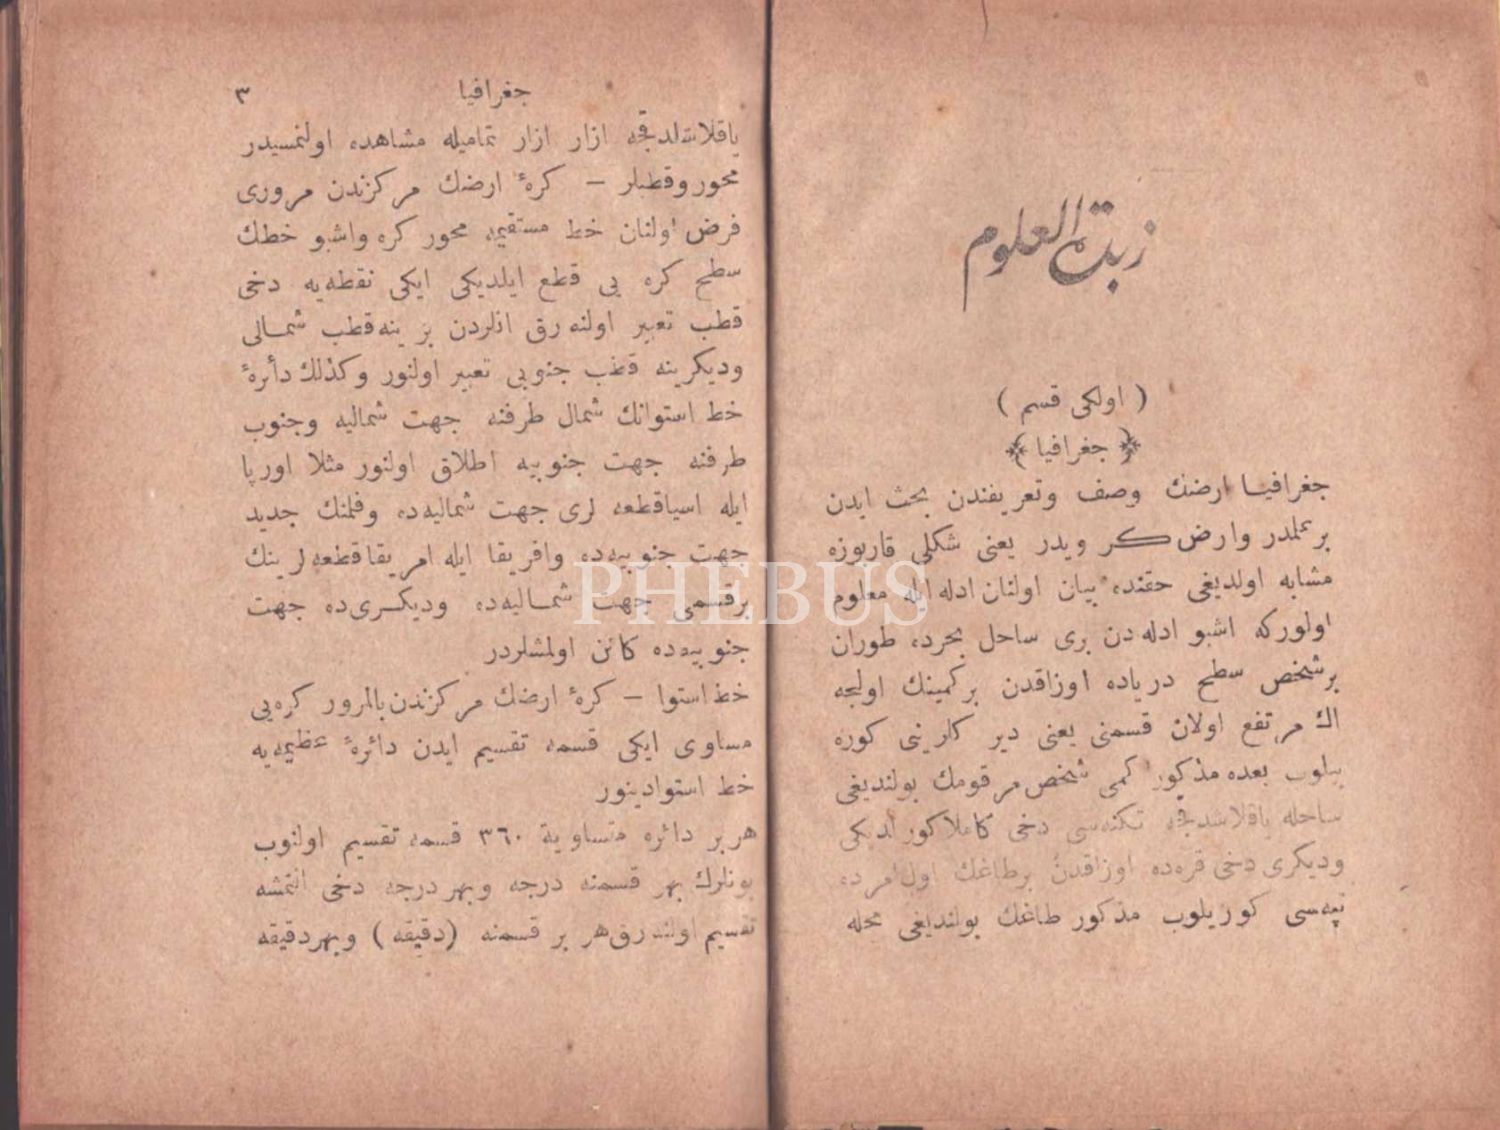 زبدة العلوم
( اولكی قسم )
﴿ جغرافیا ﴾
جغرافیـا ارضك وصف وتعریفندن بحث ایدن
بر علمدر وارض كرویدر یعنی شكلی قاربوزه
مشابه اولدیغی حقنده بیان اولنان ادله ایله معلوم
اولوركه اشبو ادله دن بری ساحل بحرده طوران
بر شخص سطح دریاده اوزاقدن بر كمینك اولجه
اك مرتفع اولان قسمنی یعنی دیركلرینی كوره
بیلوب بعده مذكور كمی شخص مرقومك بولندیغی
ساحله یاقلاشدقجه تكنه‌سی دخی كاملا كورلدیكی
ودیكری دخی قره‌ده اوزاقدن بر طاغك اول امرده
تپه‌سی كوریلوب مذكور طاغك بولندیغی محله
جغرافیا ٣
یاقلاشلدقجه ازار ازار تمامیله مشاهده اولنمسیدر
محور وقطبلر — كرهٔ ارضك مركزندن مروری
فرض اولنان خط مستقیمه محور كره واشبو خطك
سطح كره یی قطع ایلدیكی ایكی نقطه‌یه دخی
قطب تعبیر اولنه رق انلردن برینه قطب شمـالی
ودیكرینه قطب جنوبی تعبیر اولنور وكذلك دأرهٔ
خط استوانك شمال طرفنه جهت شمالیه وجنوب
طرفنه جهت جنوبیه اطلاق اولنور مثلا اورپا
ایله اسیا قطعه لری جهت شمالیه‌ده وفلمنك جدید
جهت جنوبیه‌ده وافریقا ایله امریقا قطعه لرینك
برقسمی جهت شمـالیه‌ده ودیكـری‌ده جهت
جنوبیه‌ده كائن اولمشلردر
خط استوا — كرهٔ ارضك مركزندن بالمرور كره‌یی
مساوی ایكی قسمه تقسیم ایدن دائرهٔ عظیمه‌یه
خط استوا دینور
هر بر دائره متساویة ٣٦٠ قسمه تقسیم اولنوب
بونلرك بهر قسمنه درجه وبهر درجه دخی التمشه
تقسیم اولنه رق هر بر قسمنه (دقیقه) وبهر دقیقه
PHEBUS